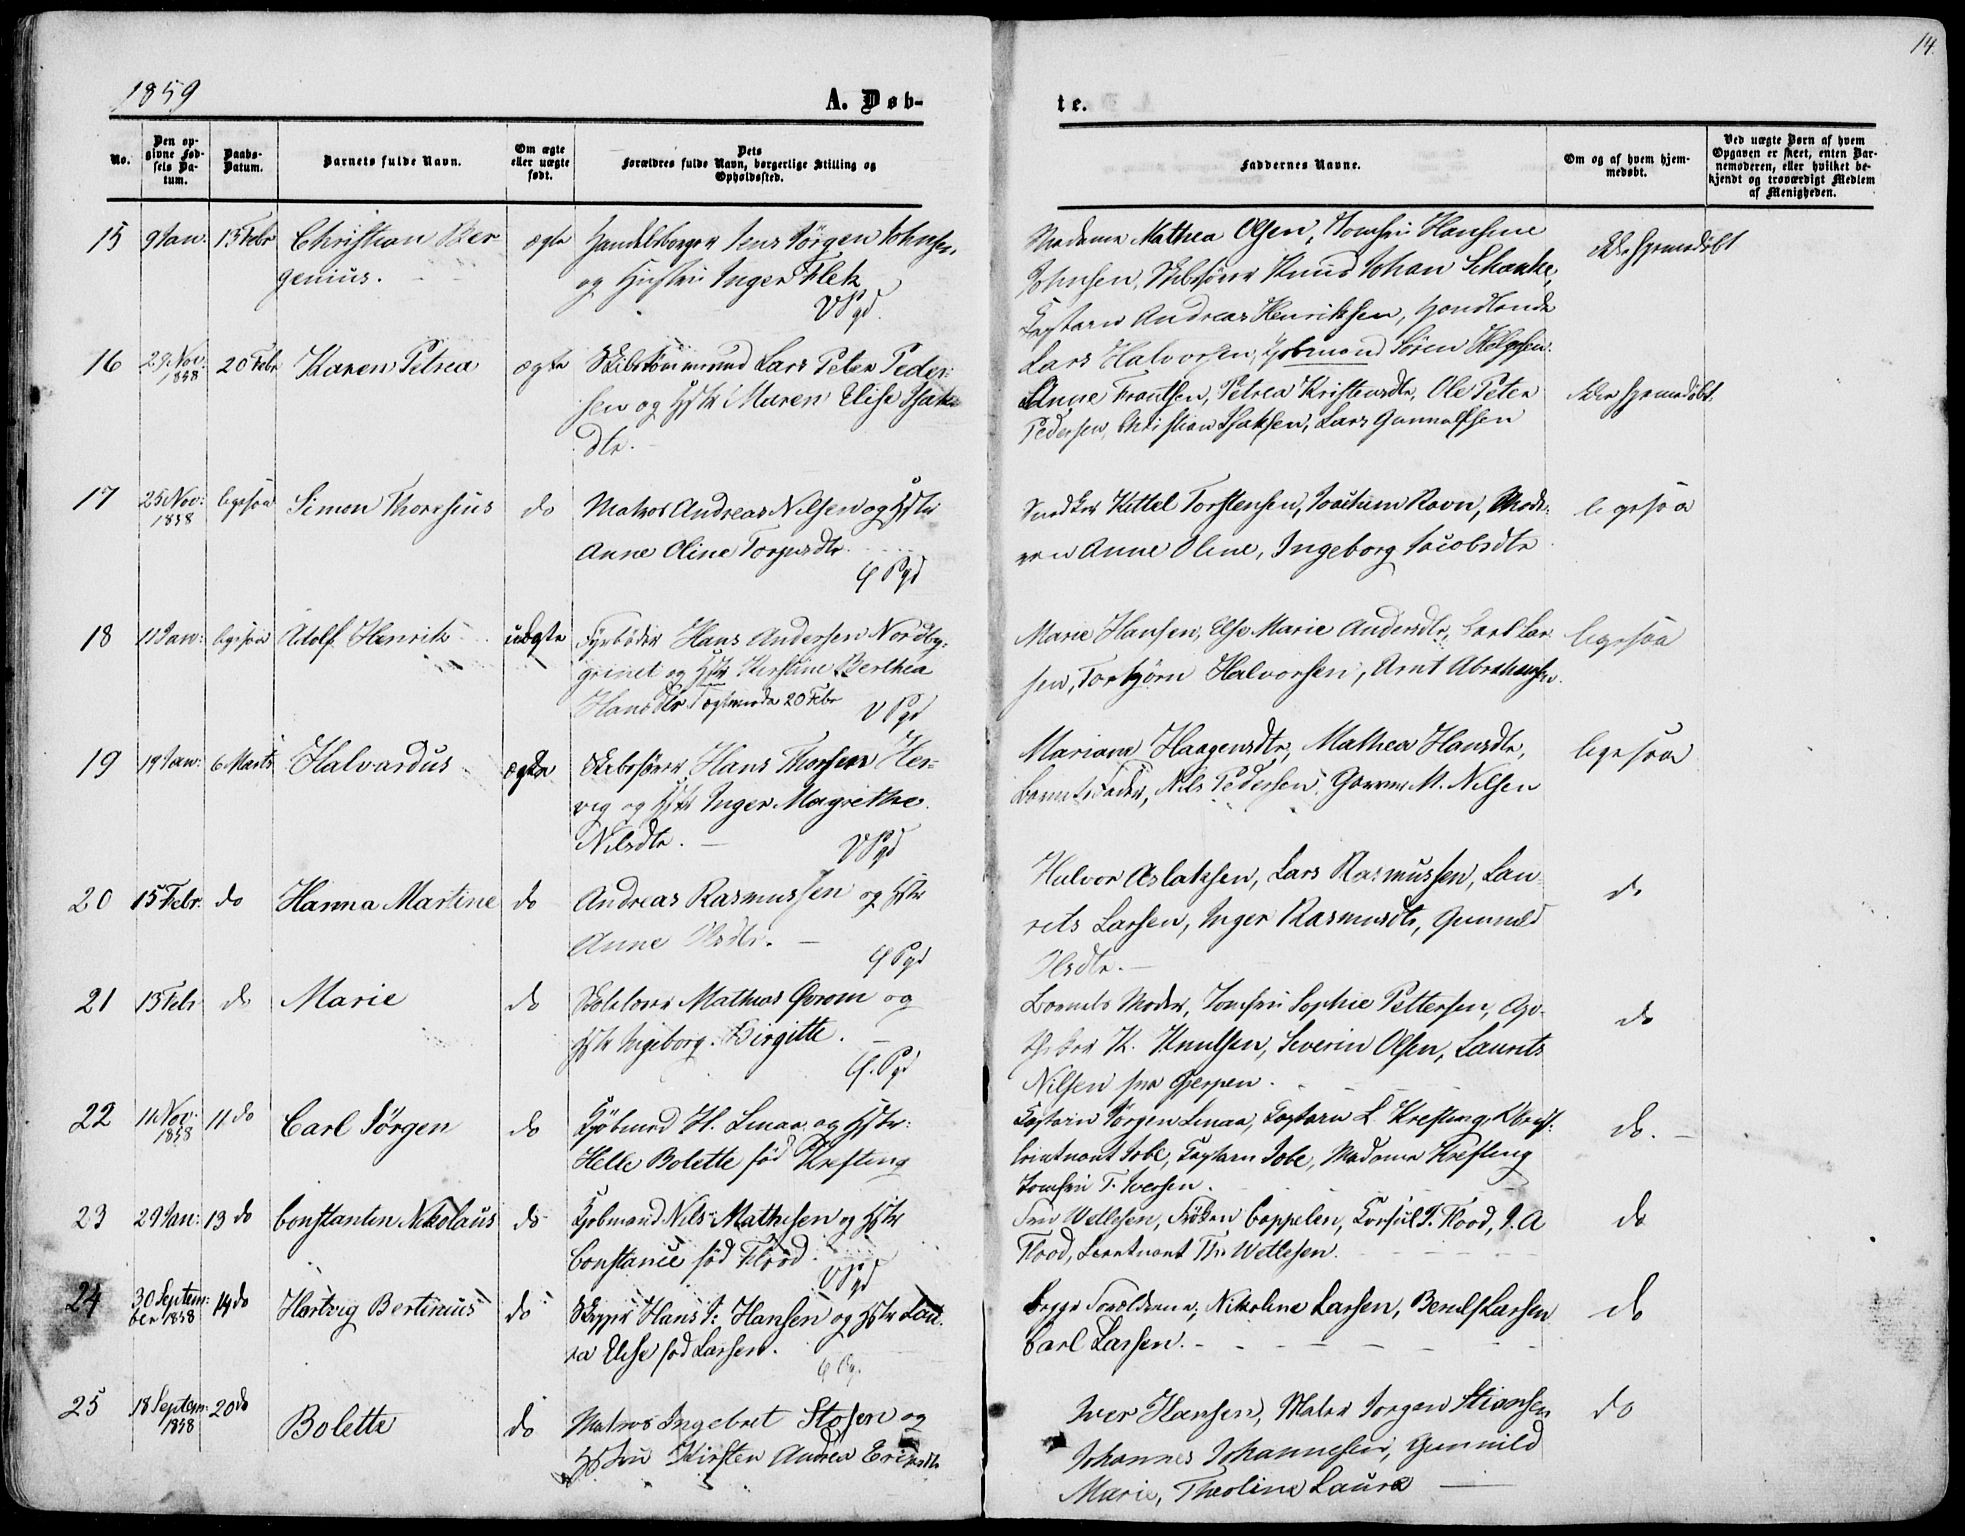 14.
1859
A. Døb-
te.
No.
Den op-
givne Fød-
sels Da-
tum.
Daabs-
Datum.
Barnets fulde Navn.
Om ægte
eller uægte
født.
Dets
Forældres fulde Navn, borgerlige Stilling og
Opholdssted.
Faddernes Navne.
Om og af hvem hjem-
medøbt.
Ved uægte Børn af hvem
Opgaven er skeet, enten Bar-
nemoderen, eller hvilket be-
kjendt og troværdigt Medlem
af Menigheden.
15 9 Jan: 13 Febr Christian Ber
genius.
ægte Handelsborger Jens Jørgen Johnsen
og Hustru Inger Flek
VPgd.
Madame Mathea Olsen, Jomfru Hansine
Johnsen, Skibsfører Knud Johan Schanke,
Captain Andreas Henriksen, Handlende
Lars Halvorsen, Søren Helgesen.
ikke hjemmedøbt
16 29 Nov: 1858 20 Febr Karen Petrea
ægte Skibstømmermand Lars Peter Peder-
sen og Hstr Maren Elise Isaks
dtr.
Anne Frantsen, Petrea Kristensdtr, Ole Peter
Pedersen, Christian Isaksen, Lars Gunnulfsen
ikke hjemmedøbt.
17 25 Nov: 1858 ligesaa Simon Thorsius
do Matros Andreas Nilsen og Hstr
Anne Oline Torjusdtr.
G Pgd
Snedker Kittel Torstensen, Joachim Ravn, Mode-
ren Anne Oline, Ingeborg Jacobsdtr
ligesaa
18 11 Jan: ligesaa Adolf Henrik
uægte Fyrbøder Hans Andersen Nordby-
grinet og Hstr Kirstine Berthea
Hansdtr ægteviede 20 Febr
V Pgd
Marie Hansen, Else Marie Andersdtr, Carl Lar
sen, Torbjørn Halvorsen, Arnt Abrahamsen.
ligesaa
19 19 Jan: 6 Marts Halvardus
ægte Skibsfører Hans Thorsen Her-
vig og Hstr Inger Magrethe
Nilsdtr.
VPgd
Mariane Haagensdtr, Mathea Hansdtr,
Barnets Fader, Nils Pedersen, Garver M. Nilsen
ligesaa
20 15 Febr. do Hanna Martine
do Andreas Rasmussen og Hstr
Anne Olsdtr.
G Pgd
Halvor Aslaksen, Lars Rasmussen, Lau-
rits Larsen, Inger Rasmusdtr, Gunnild
Olsdtr.
do
21 13 Febr do Marie
do Skolelærer Mathias Qvom og
Hstr Ingeborg Birgitte.
G. Pgd
Barnets Moder, Jomfru Sophie Pettersen,
K. Knutsen, Severin Olsen, Laurits
Nilsen fra Gjerpen.
do
22 11 Nov: 1858 11 do Carl Jørgen
do Kjøbmand H. Linaae og Hstr:
Helle Bolette fød Krefting
Captain Jørgen Linaae, Captain L. Krefting,
Lieutnant Tobe, Captain Tobe, Madame Krefting
Jomfru T. Iversen.
do.
23 29 Jan: 13 do Constantin Nikolaus
do Kjøbmand Nils Mathisen og Hstr
Constance fød Flood.
VPgd
Fru Wetlesen, Frøken Cappelen, Consul P. Flood, J. A
Flood, Lieutnant Th. Wetlesen.
do
24 30 Septem-
ber 1858 14 do Hartvig Bertinius
do Skipper Hans P: Hansen og Hstr Lau-
ra Elise fød Larsen.
G Pg.
Begge Forældrene, Nikoline Larsen, Berulf Larsen
Carl Larsen.
do
25 18 Septem: 1858 20 do Bolette
do Matros Ingebret Stosen og
Hstru Kirsten Andrea Eriksdtr
Iver Hansen, Maler Jørgen Stiansen
Johannes Johannesen, Gunnild
Marie, Theoline Laura
do